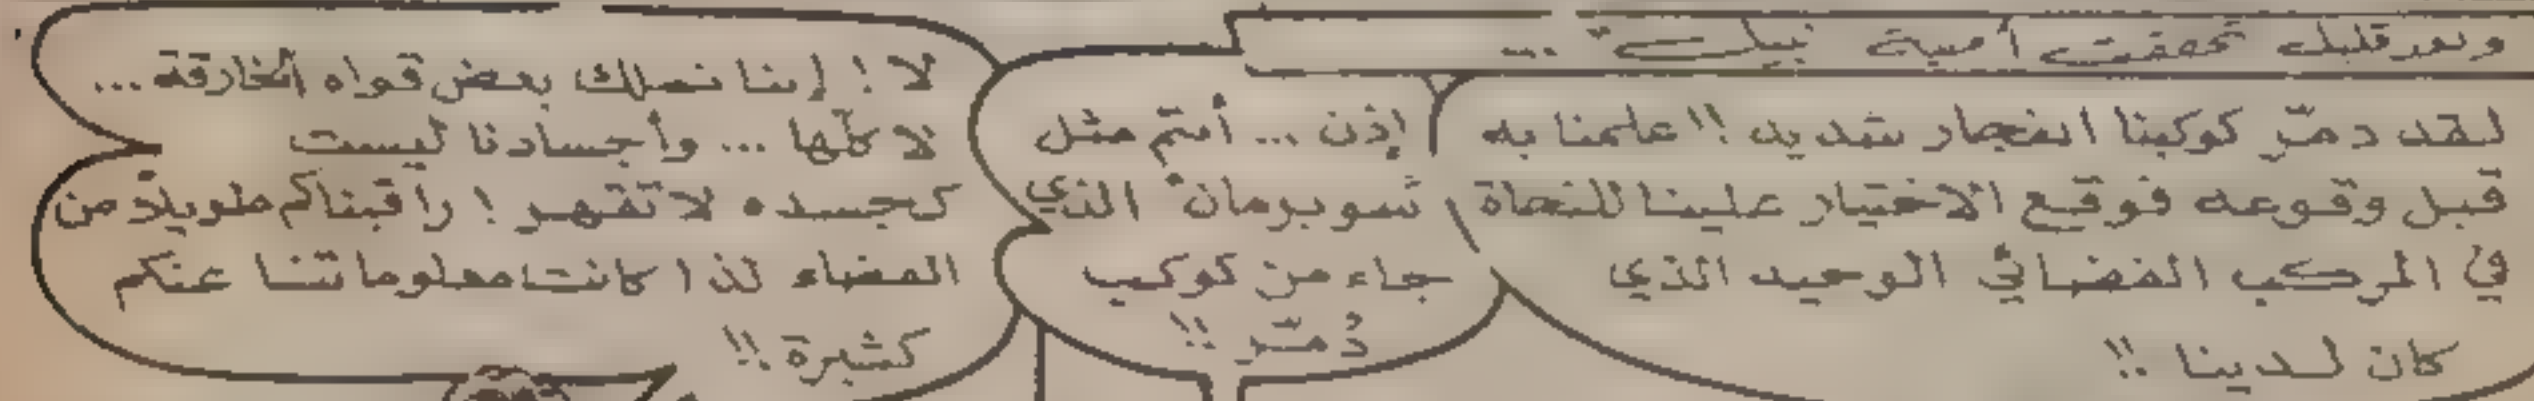 وبعد قليل تحققت أمنية "نبيل" ...
لقد دمّر كوكبنا انفجار شديد !! علمنا به
قبل وقوعه فوقع الاختيار علينا للنجاة
في المركب الفضائي الوحيد الذي
كان لدينا !!
إذن ... أنتم مثل
"سوبرمان" الذي
جاء من كوكب
دُمّر !!
لا ! إننا نملك بعض قواه الخارقة ...
لا كلّها ... وأجسادنا ليست
كجسده لا تقهر ! راقبناكم طويلاً من
الفضاء لذا كانت معلوماتنا عنكم
كثيرة !!